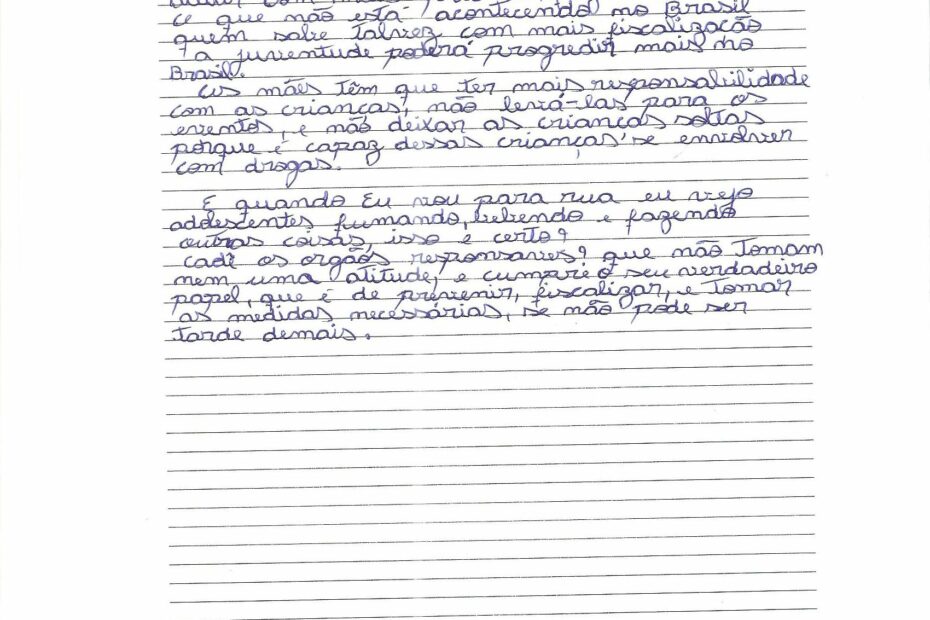 ce que não está acontecendo no Brasil
quem sabe talvez com mais fiscalização
a juventude poderá progredir mais no
Brasil.
As mães têm que ter mais responsabilidade
com as crianças, não levá-las para os
eventos, e não deixar as crianças soltas
porque é capaz dessas crianças se envolver
com drogas.
E quando Eu vou para rua eu vejo
adolestentes fumando, bebendo e fazendo
outras coisas, isso é certo?
cadê os orgãos responsaves? que não Tomam
nem uma atitude, e cumpre o seu verdadeiro
papel, que é de prevenir, fiscalizar, e Tomar
as medidas necessárias, se não pode ser
Tarde demais.